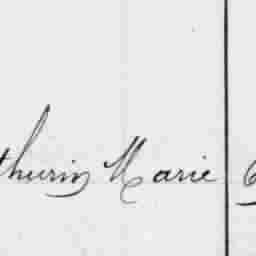 thurin Marie